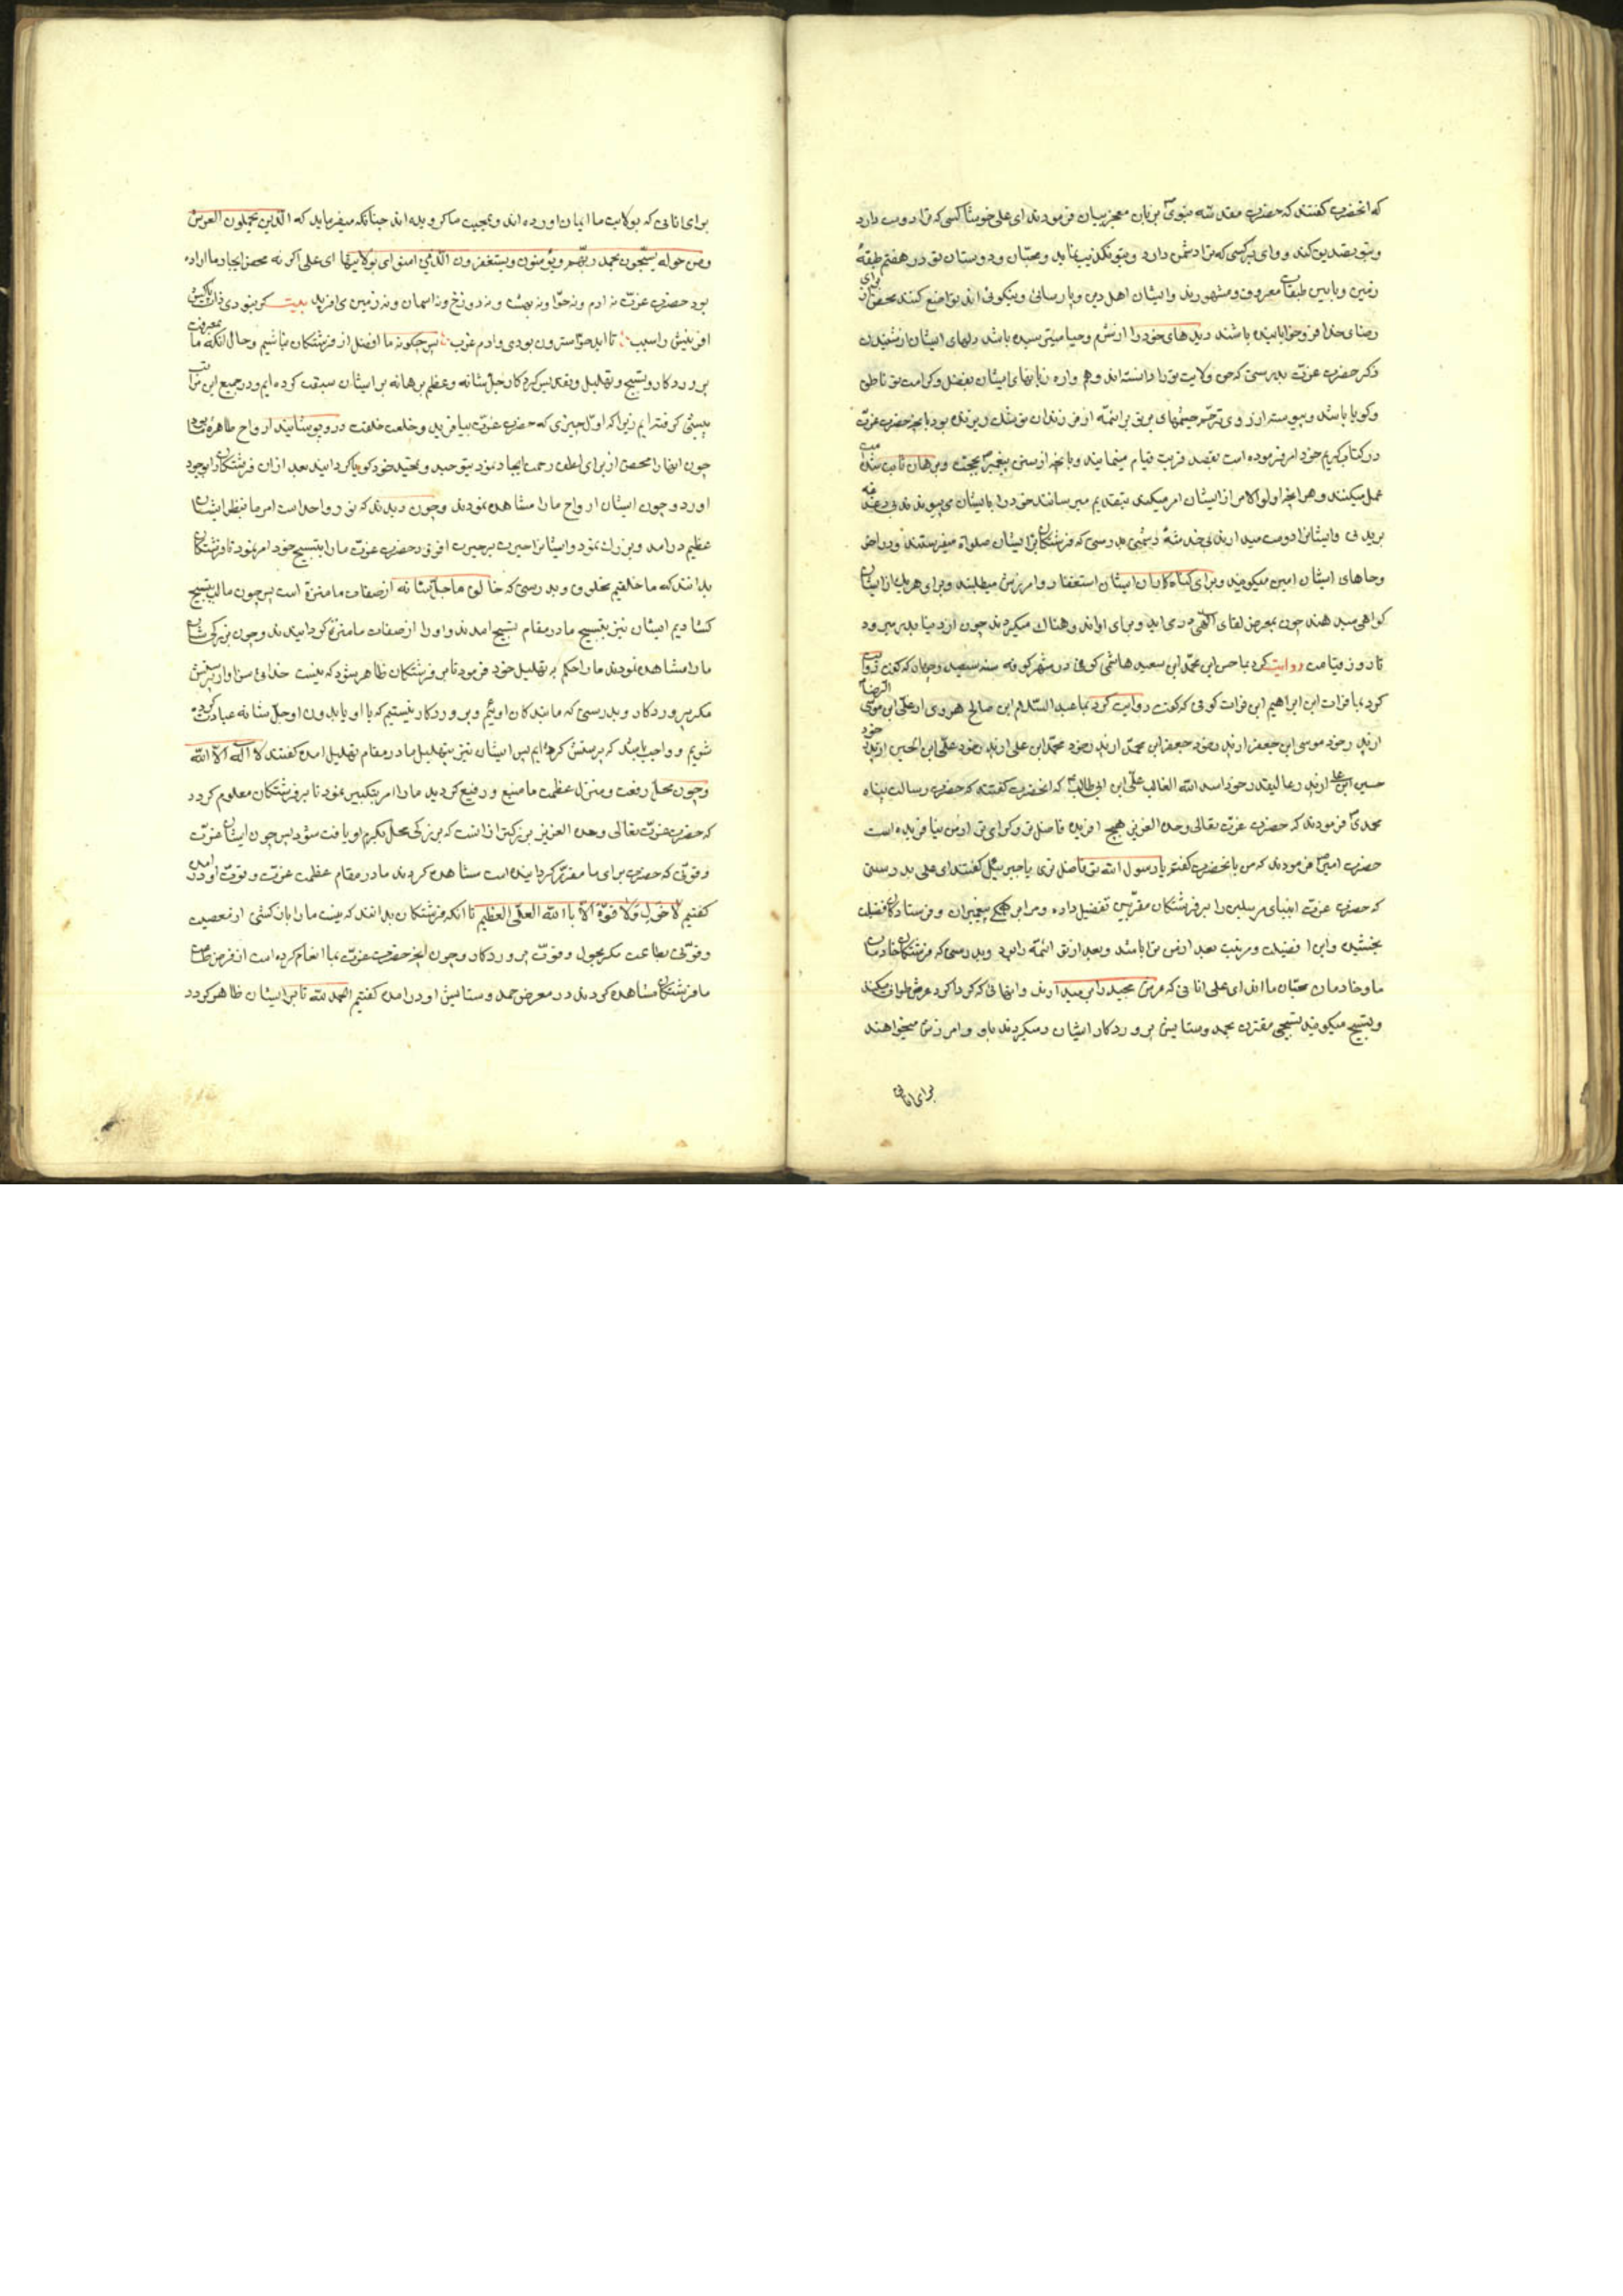 که انحضرت گفتند که حضرت مقدسه نبوی بزبان معجز بیان فرمودند ای علی خوشا کسی که ترا دوست دارد
و بتو تصدیق کند و وای بر کسی که ترا دشمن دارد و بتو تکذیب نماید و محبّان و دوستان تو در هفتم طبقهٔ
زمین و پایین طبقات معروف و مشهورند و ایشان اهل دین و پارسائی و نیکوئی اند تواضع کنند محض از برای
رضای خدا فرو خوابانیده باشند دیدهای خود را از شرم و حیا میترسیده باشد دلهای ایشان از شنیدن
ذکر حضرت عزت بدرستی که حق ولایت تو را دانسته اند و هم واره زبانهای ایشان بفضل و کرامت تو ناطق
و کویا باشد و پیوسته از روی ترحّم چشمهای بر تو بر ائمّه از فرزندان تو اشک ریزنده بود بانچه حضرت عزّت
در کتاب کریم خود امر فرموده است بقصد قربت قیام مینمایند و بانچه از سنن پیغمبر بحجت و برهان ثابت شده
عمل میکنند و هر انچه اولوالامر از ایشان امر میکند بتقدیم میرسانند خود را بایشان می پیوندند بی دغدغه
بریدنی و ایشانرا دوست میدارند بی خدشهٔ دشمنی بدرستی که فرشتکان بر ایشان صلواة میفرستند و در
دعاهای ایشان امین میکویند و برای کناه کاران ایشان استغفار و امرزش میطلبند و برای هر یک از ایشان
کواهی میدهند چون بمعرض لقای الهی در می اید و برای او اندوهناک میکردند چون از دنیا بدر میرود
تا روز قیامت روایت کرد بما حسن ابن محمد ابن سعید هاشمی کوفی در شهر کوفه سنه سیصد و چهار که کفت روایت
کرد بما فرات ابن ابراهیم ابن فرات کوفی که کفت روایت کرد بما عبد السّلام ابن صالح هروی از علی ابن موسی الرضا
از پدر خود موسی ابن جعفر از پدر خود جعفر ابن محمد از پدر خود محمد ابن علی از پدر خود علی ابن الحسین از پدر خود
حسین ابن علی از پدر عالیقدر خود اسد الله الغالب علی ابن ابی طالب که انحضرت کفتند که حضرت رسالت پناه
محمدی فرمودند که حضرت عزت تعالی وحده العزیز هیچ افریده فاضل تر و کرامی تر از من نیافریده است
حضرت امیر فرمودند که من بانحضرت کفتم یا رسول الله تو فاضل تری یا جبرییل کفتند ای علی بدرستی
که حضرت عزت انبیای مرسلین را بر فرشتکان مقربین تفضیل داده و مرا بر همکی پیغمبران و فرستادکان فضیلت
بخشیده و این افضیلت و مرتبت بعد از من ترا باشد و بعد از تو ائمّه را بود و بدرستی که فرشتکان خادمان
ما و خادمان محبّان ما اند ای علی انانی که عرش مجید را بر میدارند و انهائی که کرداکرد عرش طواف میکنند
و تسبیح میکویند تسبیحی مقترن بحمد و ستایش پروردکار ایشان و میکروند باو و امرزش میخواهند
برای انانی
برای انانی که بولایت ما ایمان اورده اند و بمحبت ما کرویده اند چنانکه میفرماید که الّذین یحملون العرش
ومن حوله یسبّحون بحمد ربّهم ویؤمنون ویستغفرون الّذین امنوا ای بولایتها ای علی اکر نه محض ایجاد ما اراده
بود حضرت عزّت نه ادم و نه حوّا و نه بهشت و نه دوزخ و نه اسمان و نه زمین می افرید بیت کر نبودی ذات پاکش
افرینش را سبب تا ابد حوّا سترون بودی و ادم عزب پس چکونه ما افضل از فرشتکان نباشیم و حال انکه ما بمعرفت
پروردکار و تسبیح و تهلیل و تقدیس کردکار جلّ شانه و عظم برهانه بر ایشان سبقت کرده ایم و در جمیع این مراتب
پیشی کرفته ایم زیرا که اوّل چیزی که حضرت عزّت بیافرید و خلعت خلقت درو پوشانید ارواح طاهرهٔ ما بود
چون انها را محض از برای اعلان رحمت ایجاد نمود بتوحید و تحمید خود کویا کردانید بعد از ان فرشتکان را بوجود
اورد و چون ایشان ارواح ما را مشاهده نمودند وچون دیدند که نور واحد است امر ما بنظر ایشان
عظیم در امد و بزرک نمود و ایشانرا حیرت بر حیرت افزود حضرت عزّت ما را بتسبیح خود امر نمود تا فرشتکان
بدانند که ما خلقیم مخلوق و بدرستی که خالق ما جلّ شانه از صفات ما منزه است پس چون ما لب بتسبیح
کشادیم ایشان نیز بتسبیح ما در مقام تسبیح امدند و او را از صفات ما منزه کردانیدند و چون بزرکی شان
ما را مشاهده نمودند ما را حکم به تهلیل خود فرمود تا بر فرشتکان ظاهر شود که نیست خدائی سزاوار پرستش
مکر پروردکار و بدرستی که ما بندکان اوئیم و پروردکار نیستیم که با او یا بدون او جلّ شانه عبادت کرده
شویم و واجب باشد که پرستش کرده ایم پس ایشان نیز بتهلیل ما در مقام تهلیل امده کفتند لا اله الّا الله
وچون محل رفعت و منزل عظمت ما منیع و رفیع کردید ما را امر بتکبیر نمود تا بر فرشتکان معلوم کردد
که حضرت عزّت تعالی وحده العزیز بزرکتر از انست که بزرکی محل بکرم او یافت شود پس چون ایشان عزّت
و قوّتی که حضرت برای ما مقرّر کردانیده است مشاهده کردند ما در مقام عظمت عزّت و قوّت او در امده
کفتیم لا حول ولا قوّة الّا باالله العلّی العظیم تا انکه فرشتکان بدانند که نیست ما را بازکشتی از معصیت
و قوّتی بطاعت مکر بحول و قوّت پروردکار و چون انچه حضرت عزّت بما انعام کرده است از فرض طاعت
ما فرشتکان مشاهده کردند در معرض حمد و ستایش او در امده کفتیم الحمد لله تا بر ایشان ظاهر کردد